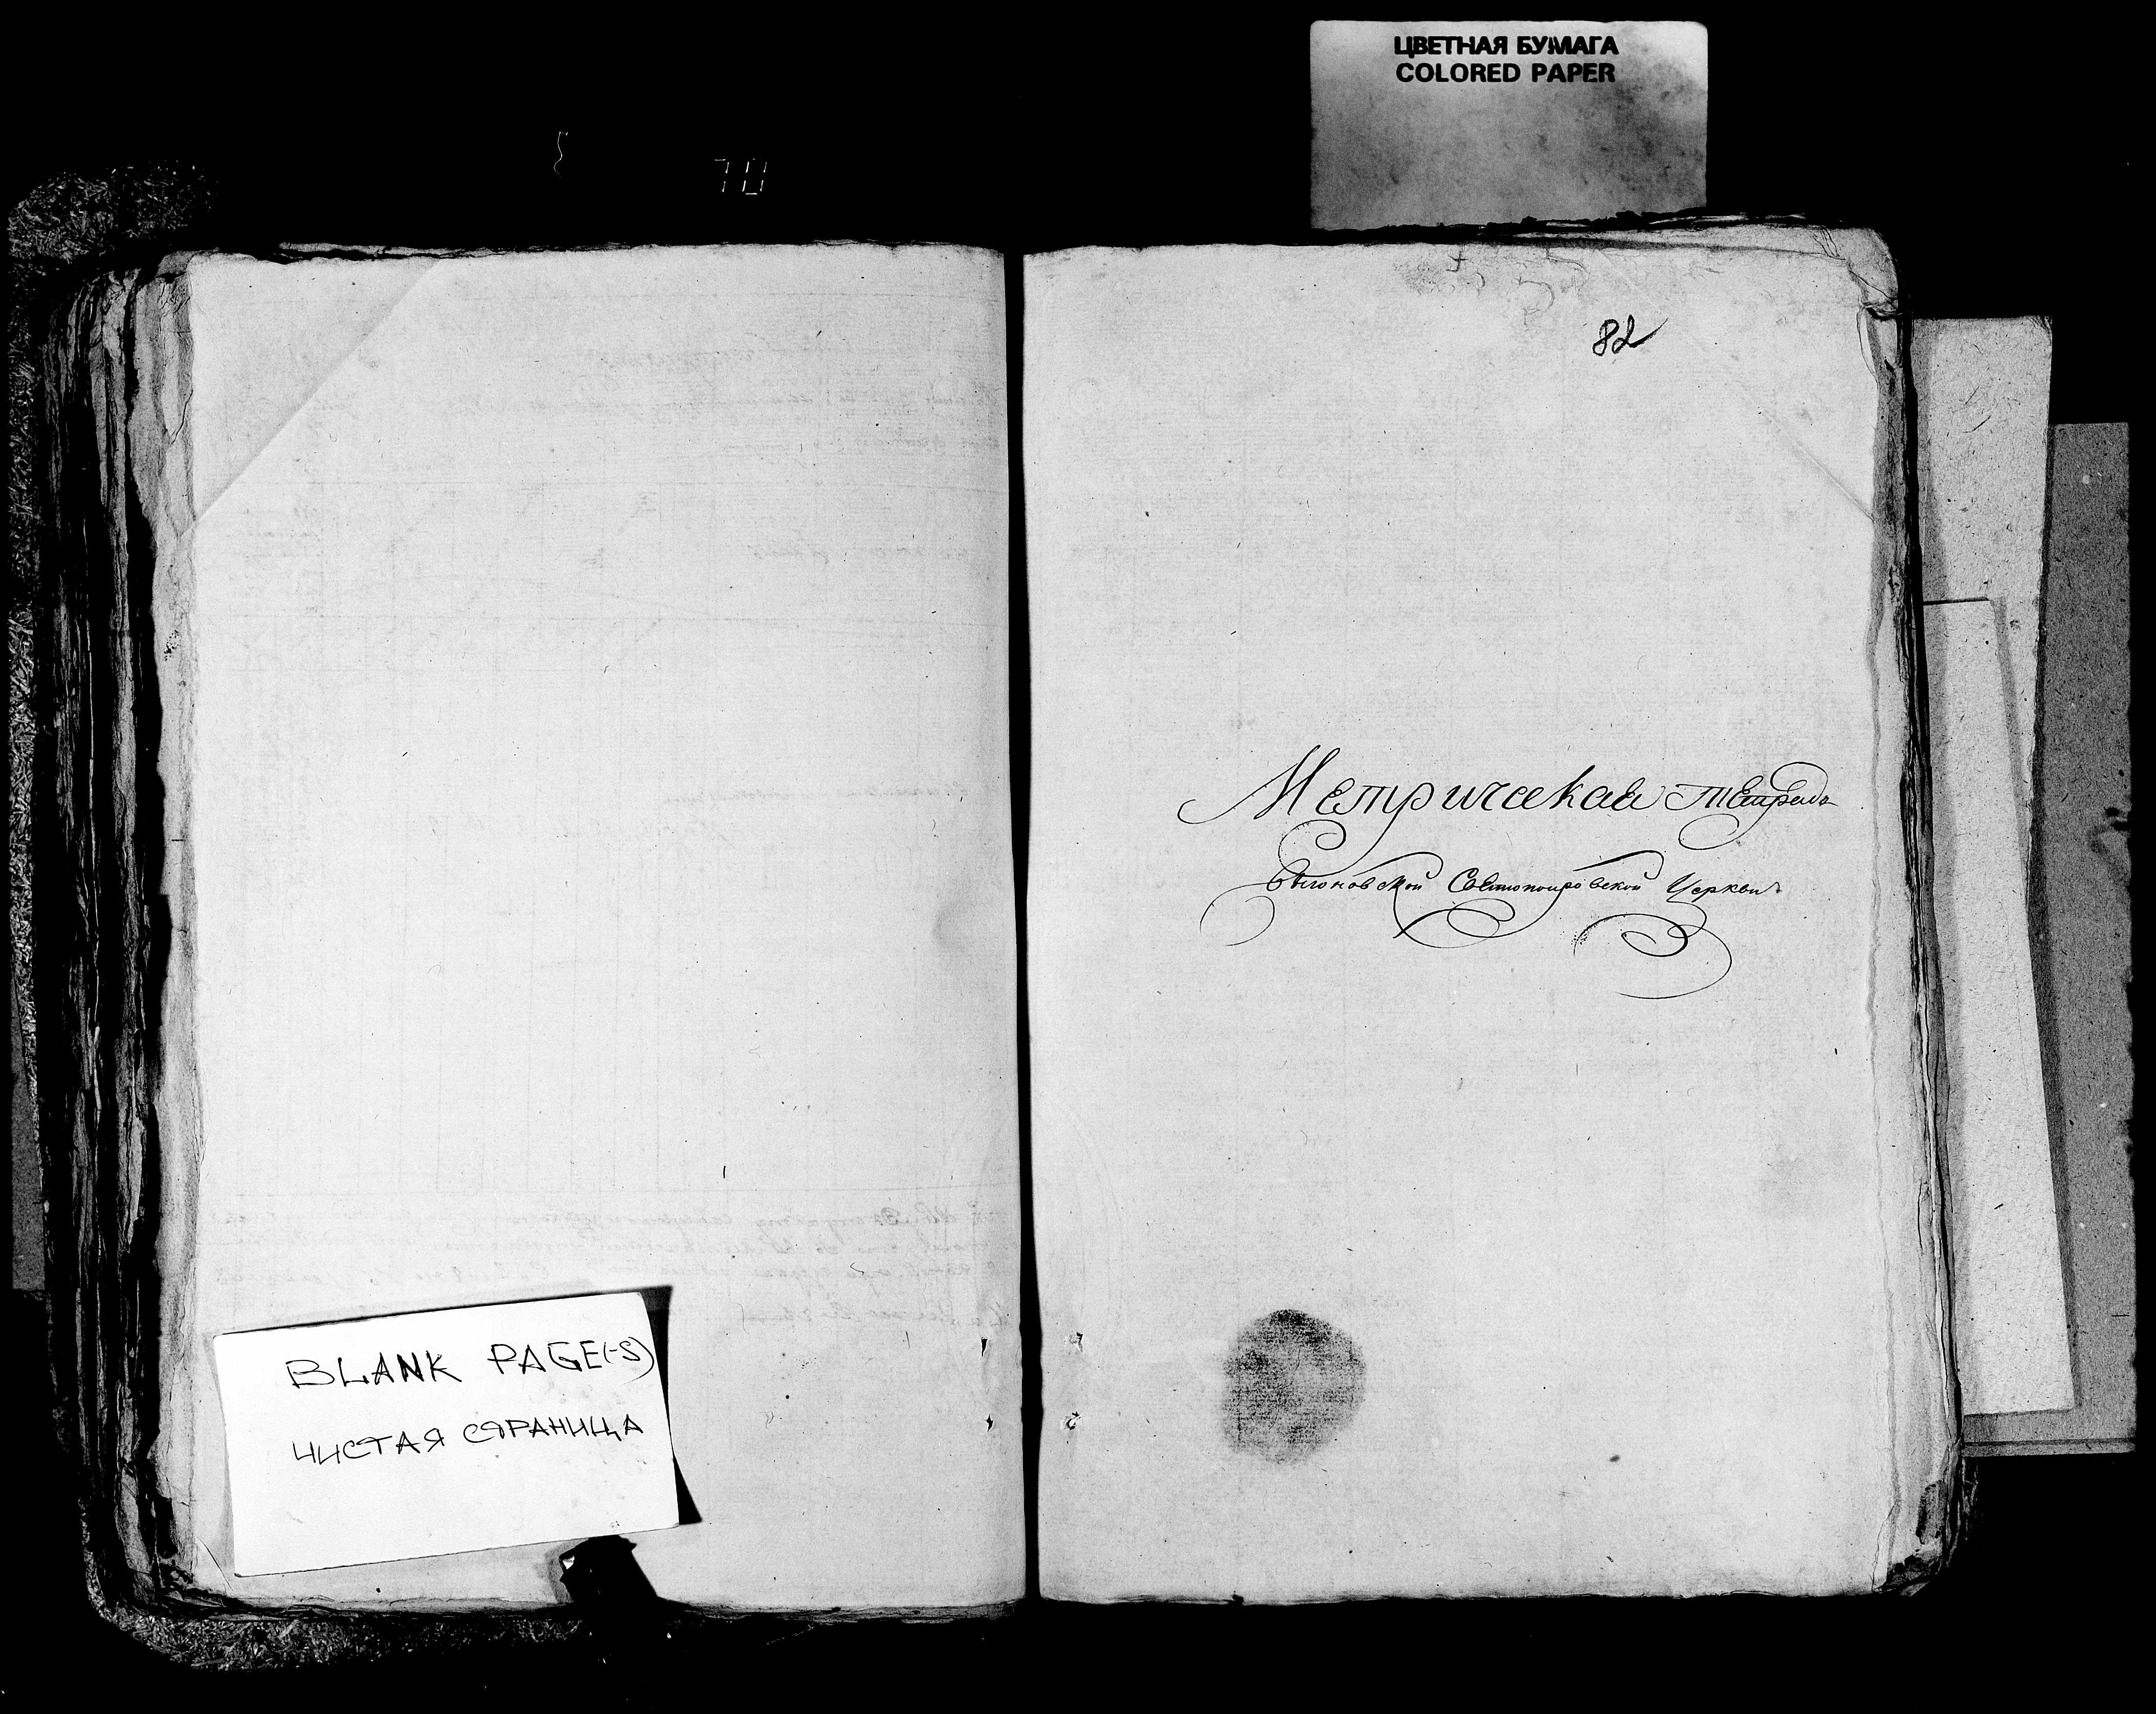 ЦВЕТНАЯ БУМАГА
COLORED PAPER
82
Метрическая тетрадь
Церкви
BLANK PAGE(-S)
ЧИСТАЯ СТРАНИЦА